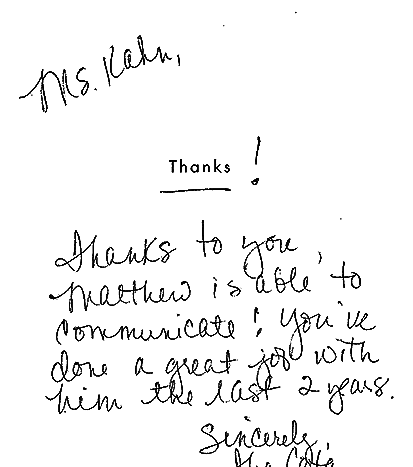 Ms. Kahn,
Thanks!
Thanks to you,
Matthew is able to
communicate! You've
done a great job with
him the last 2 years.
Sincerely,